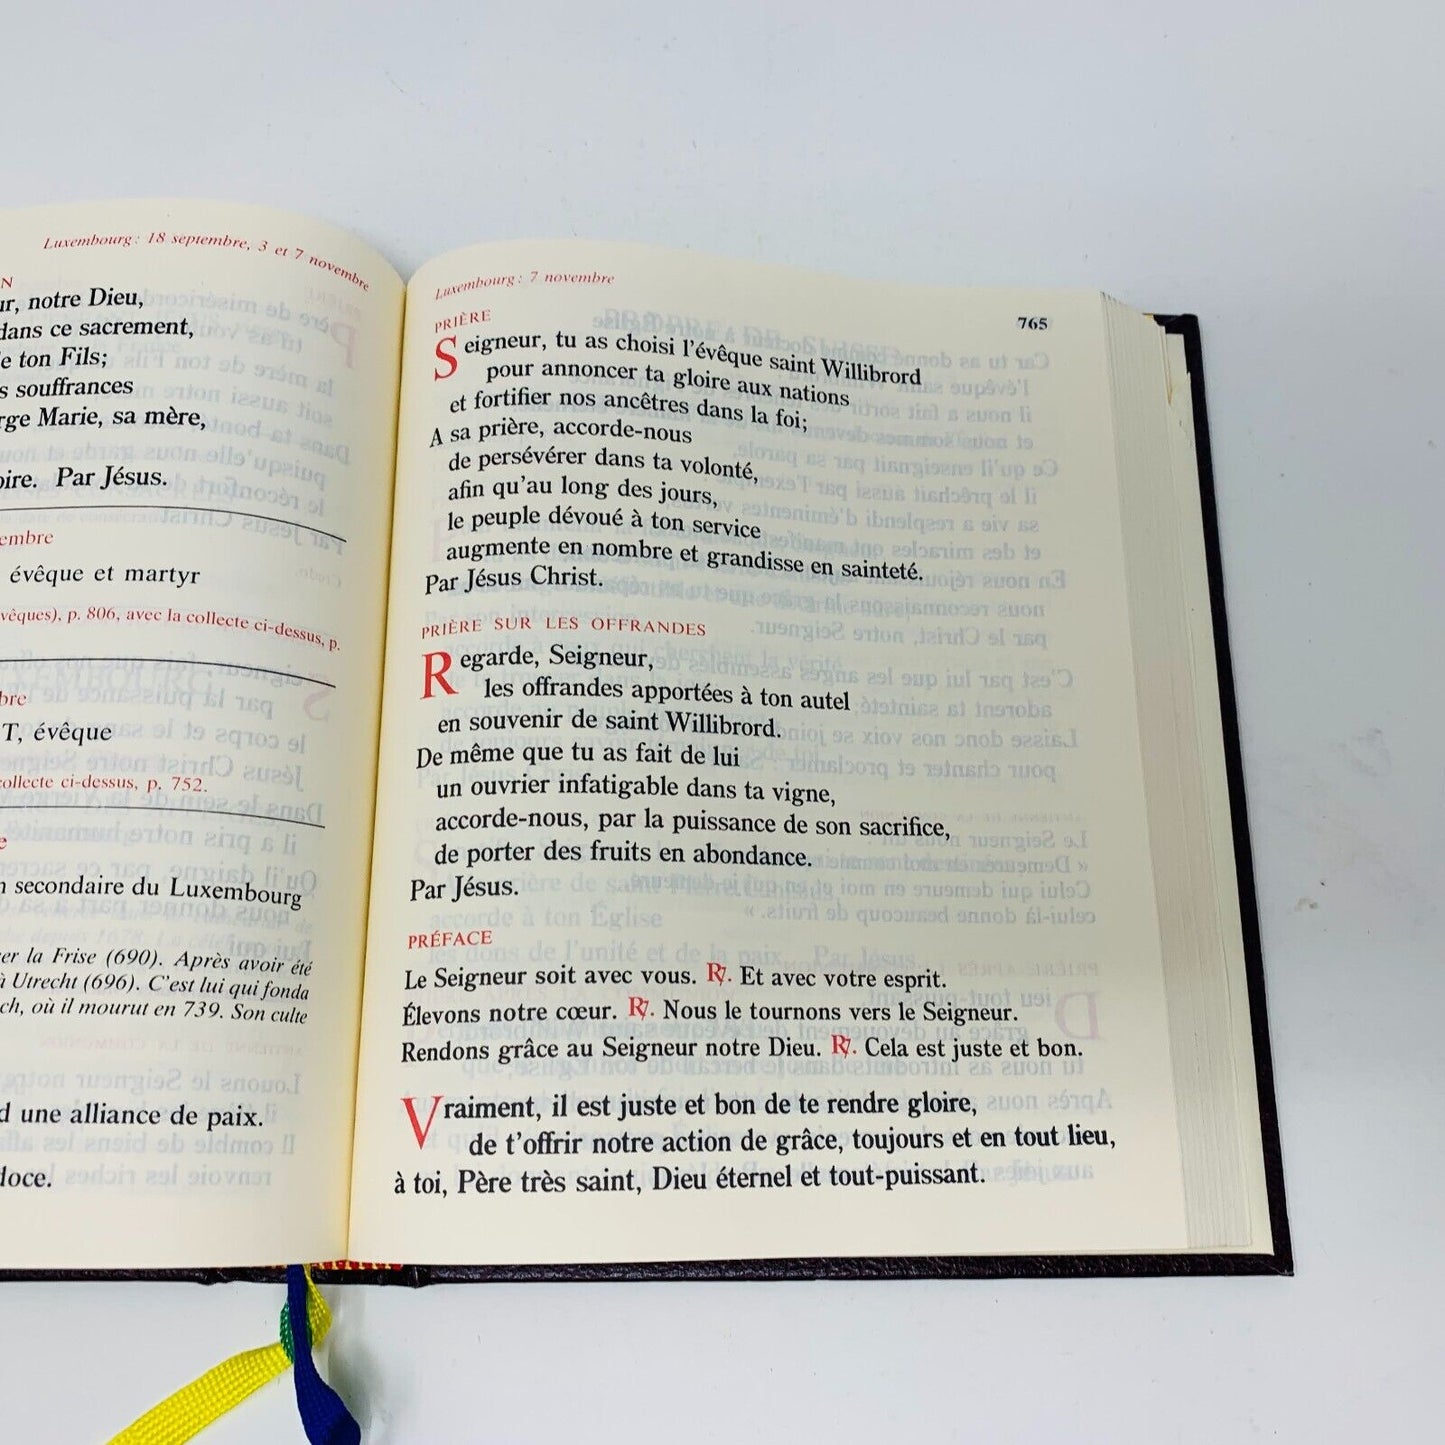 Luxembourg : 18 septembre, 3 et 7 novembre
notre Dieu,
dans ce sacrement,
ton Fils;
souffrances
Marie, sa mère,
Par Jésus.
évêque et martyr
p. 806, avec la collecte ci-dessus, p.
évêque
ci-dessus, p. 752.
secondaire du Luxembourg
la Frise (690). Après avoir été
à Utrecht (696). C'est lui qui fonda
où il mourut en 739. Son culte
une alliance de paix.
Luxembourg : 7 novembre
765
PRIÈRE
Seigneur, tu as choisi l'évêque saint Willibrord
pour annoncer ta gloire aux nations
et fortifier nos ancêtres dans la foi;
A sa prière, accorde-nous
de persévérer dans ta volonté,
afin qu'au long des jours,
le peuple dévoué à ton service
augmente en nombre et grandisse en sainteté.
Par Jésus Christ.
PRIÈRE SUR LES OFFRANDES
Regarde, Seigneur,
les offrandes apportées à ton autel
en souvenir de saint Willibrord.
De même que tu as fait de lui
un ouvrier infatigable dans ta vigne,
accorde-nous, par la puissance de son sacrifice,
de porter des fruits en abondance.
Par Jésus.
PRÉFACE
Le Seigneur soit avec vous. ℟. Et avec votre esprit.
Élevons notre cœur. ℟. Nous le tournons vers le Seigneur.
Rendons grâce au Seigneur notre Dieu. ℟. Cela est juste et bon.
Vraiment, il est juste et bon de te rendre gloire,
de t'offrir notre action de grâce, toujours et en tout lieu,
à toi, Père très saint, Dieu éternel et tout-puissant.